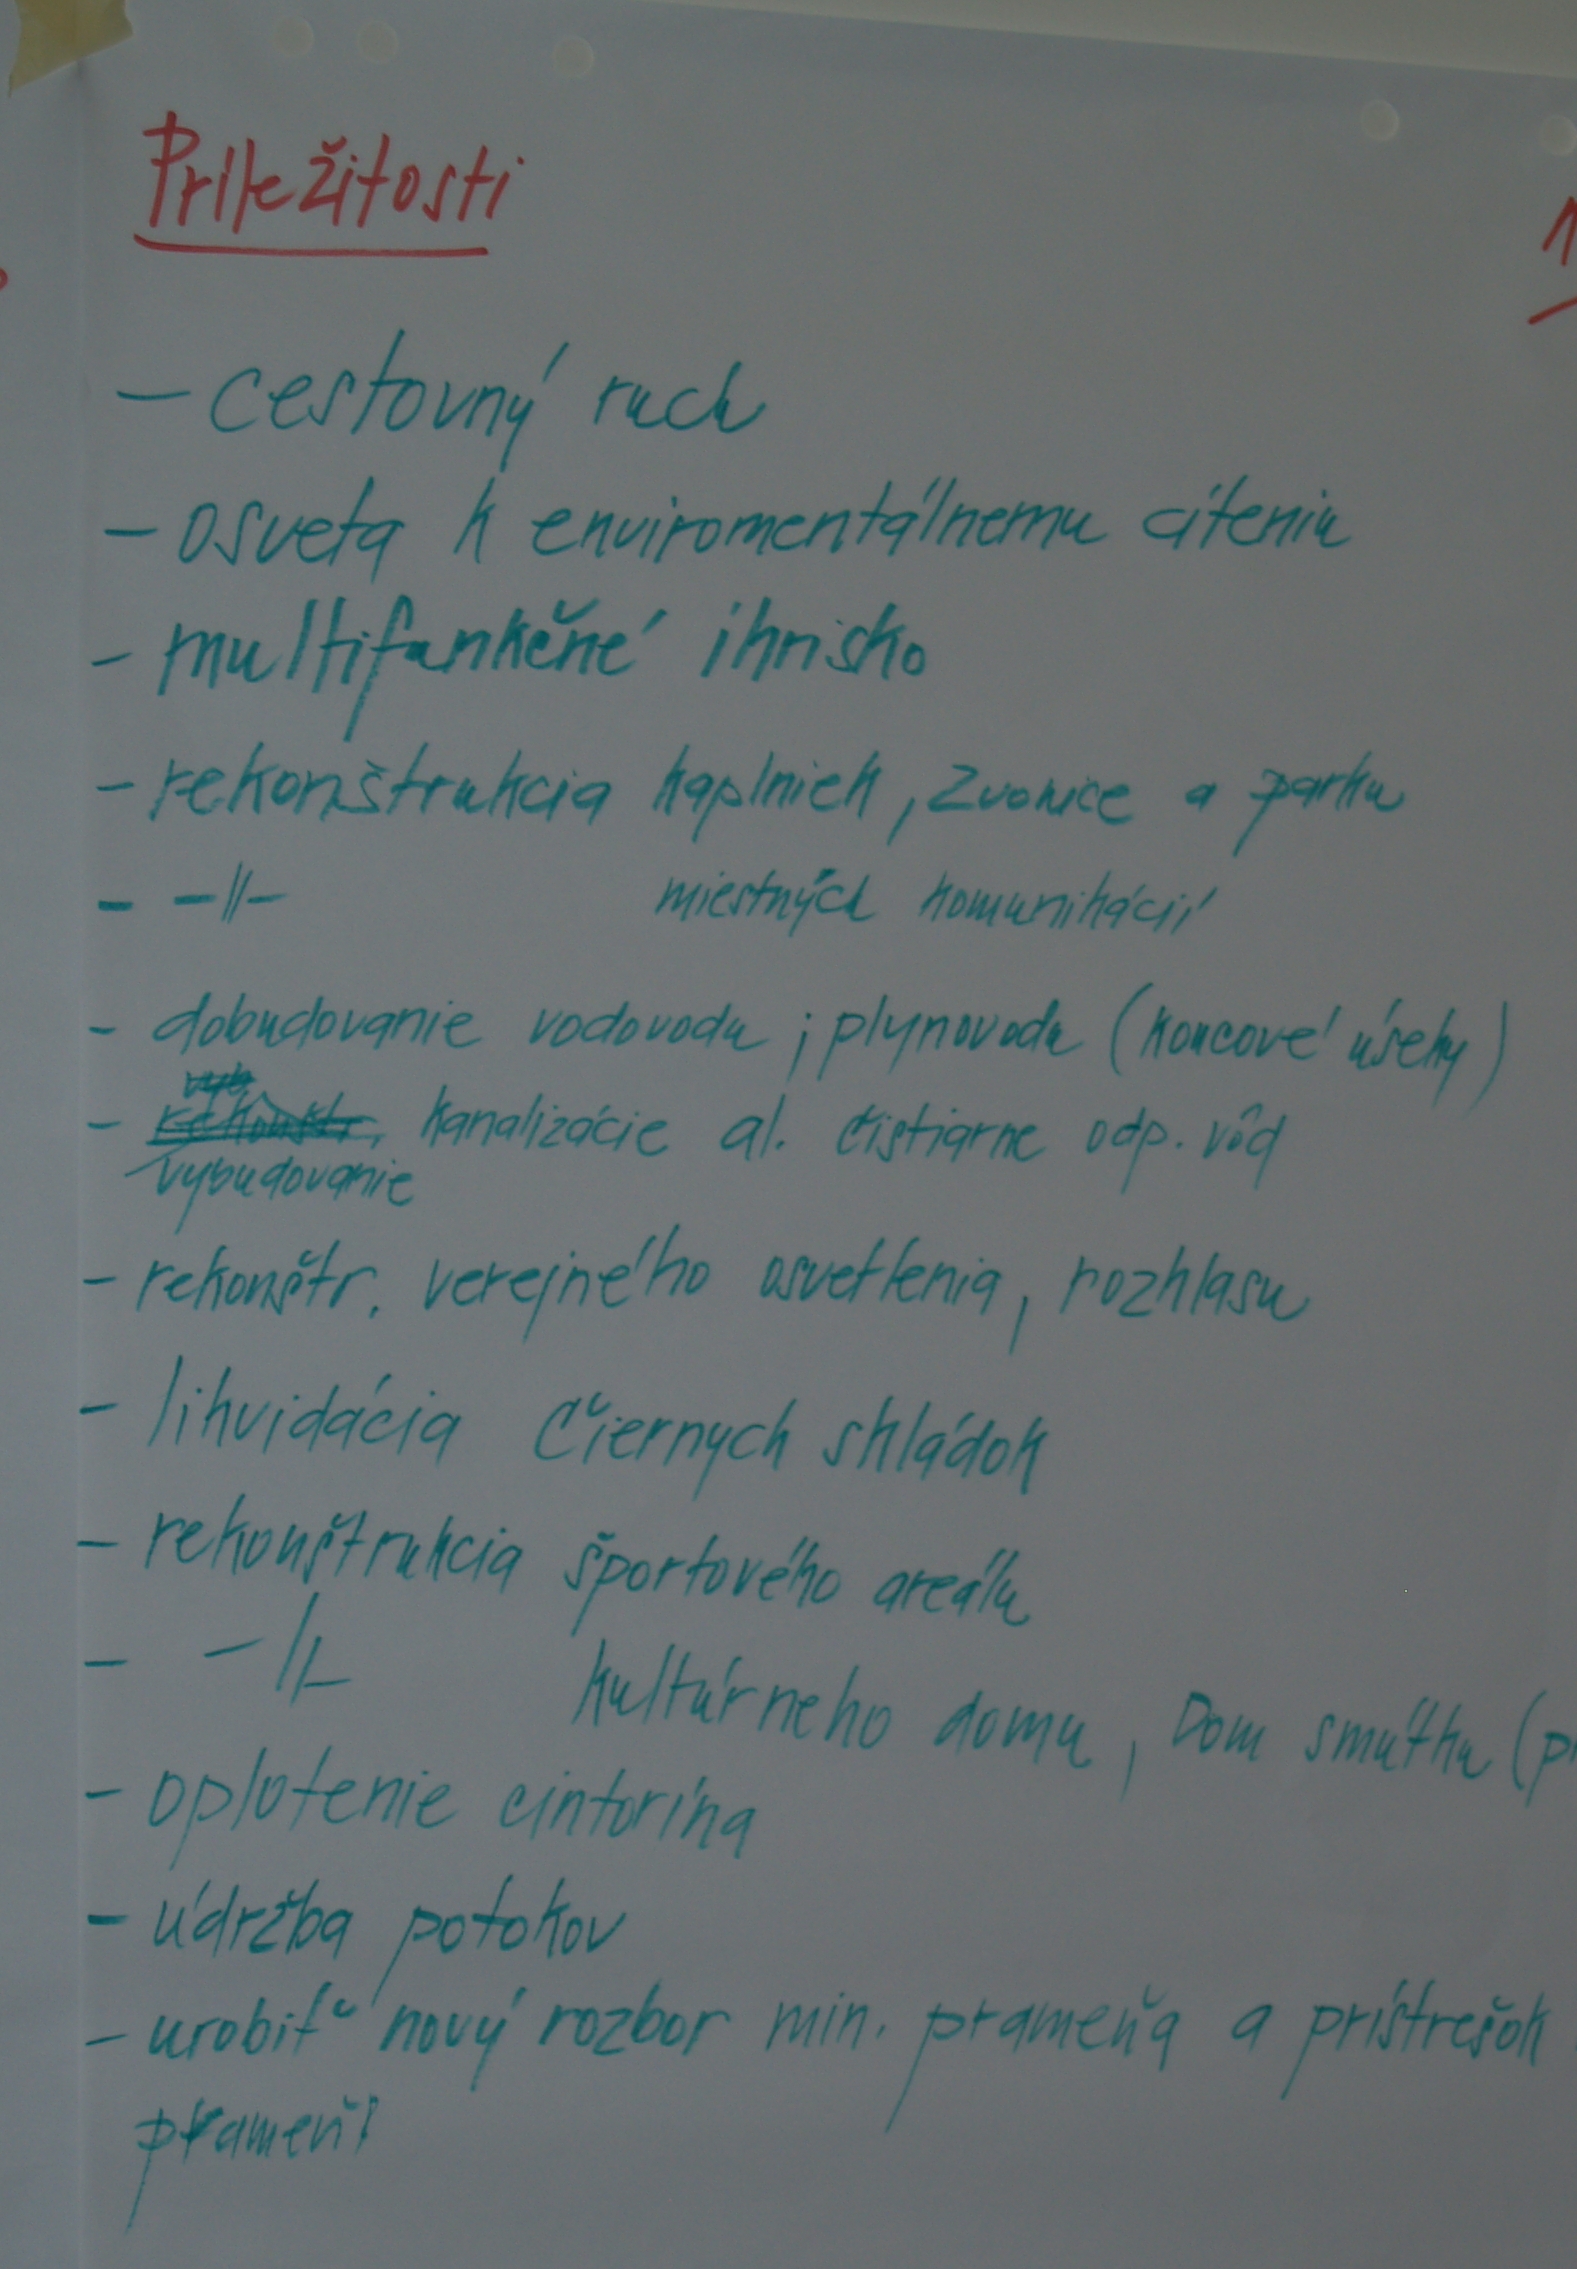 Príležitosti
- cestovný ruch
- osveta k enviromentálnemu cíteniu
- multifunkčné ihrisko
- rekonštrukcia kaplniek, zvonice a parku
- -||- miestných komunikácií
- dobudovanie vodovodu ; plynovodu (koncové úseky)
- kanalizácie al. čistiarne odp. vôd
vybudovanie
- rekonštr. verejného osvetlenia, rozhlasu
- likvidácia čiernych skládok
- rekonštrukcia športového areálu
- -||- kultúrneho domu, Dom smútku (pr
- oplotenie cintorína
- údržba potokov
- urobiť nový rozbor min. prameňa a prístrešok
prameni